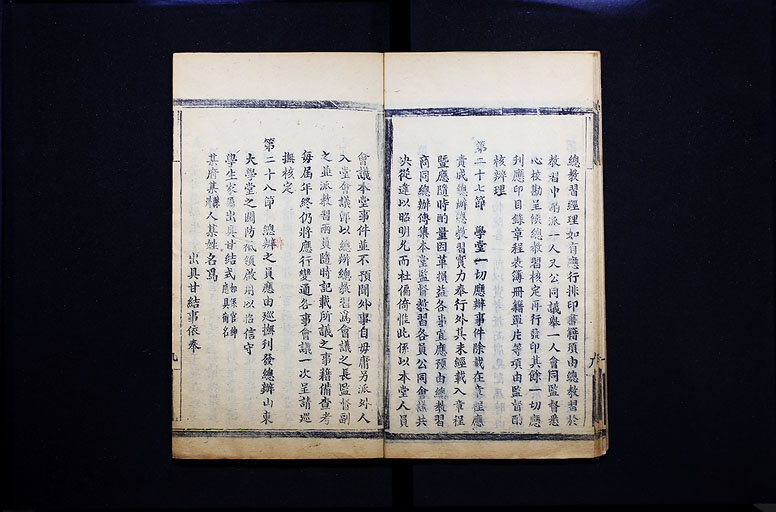 總教習經理如有應行排印書籍須由總教習於
教習中酌派一人又公同議舉一人會同監督悉
心校勘呈候總教習核定再行發印其餘一切應
刋應印目錄章程表簿冊籍單片等項由監督酌
核辦理
第二十七節 學堂一切應辦事件除載在章程應
責成總辦總教習實力奉行外其未經載入章程
暨應隨時酌量因革損益各事宜應預由總教習
商同總辦傳集本堂監督教習各員公同會議共
決從違以昭明允而杜偏倚惟此係以本堂人員
會議本堂事件並不預聞外事自毋庸另派外人
入堂會議即以總辦總教習爲會議之長監督副
之並派教習兩員隨時記載所議之事藉備查考
每屆年終仍將應行變通各事會議一次呈請巡
撫核定
第二十八節 總辦之員應由巡撫刋發總辦山東
大學堂之關防祗領啟用以昭信守
學生家屬出具甘結式如係官紳應具銜名
某府某縣人某姓名爲
出具甘結事依奉
九